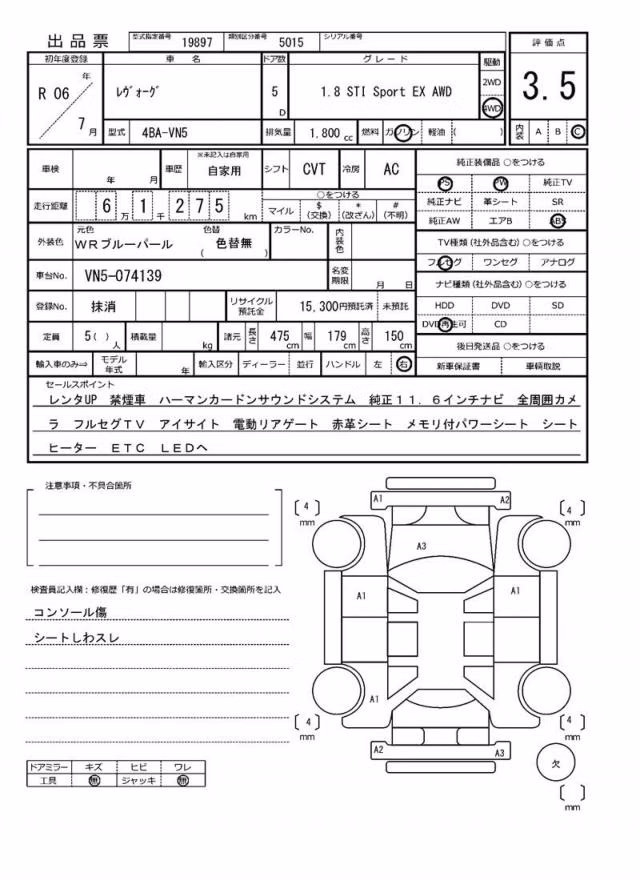 出品票 型式指定番号 19897 類別区分番号 5015 シリアル番号
評価点
3.5
内装 A B C
初年度登録 車名 ドア数 グレード 駆動
R 06 年 7 月
レヴォーグ 5 D 1.8 STI Sport EX AWD 2WD 4WD
型式 4BA-VN5 排気量 1.800 cc 燃料 ガソリン 軽油 ( )
車検 年 月 車歴 ※未記入は自家用 自家用 シフト CVT 冷房 AC
走行距離 6 万 1 千 2 7 5 km
○をつける
マイル $(交換) *(改ざん) #(不明)
外装色 元色 WRブルーパール 色替 ( 色替無 ) カラーNo. 内装色
車台No. VN5-074139 名変期限 月 日
登録No. 抹消 リサイクル預託金 15,300円預託済 未預託
定員 5( ) 人 積載量 kg 諸元 長さ 475 cm 幅 179 cm 高さ 150 cm
輸入車のみ⇒ モデル年式 年 輸入区分 ディーラー 並行 ハンドル 左 右
純正装備品 ○をつける
PS PW 純正TV
純正ナビ 革シート SR
純正AW エアB ABS
TV種類(社外品含む)○をつける
フルセグ ワンセグ アナログ
ナビ種類(社外品含む)○をつける
HDD DVD SD
DVD再生可 CD
後日発送品 ○をつける
新車保証書 車輌取説
セールスポイント
レンタUP 禁煙車 ハーマンカードンサウンドシステム 純正11.6インチナビ 全周囲カメ
ラ フルセグTV アイサイト 電動リアゲート 赤革シート メモリ付パワーシート シート
ヒーター ETC LEDヘ
注意事項・不具合箇所
検査員記入欄：修復歴「有」の場合は修復箇所・交換箇所を記入
コンソール傷
シートしわスレ
ドアミラー キズ ヒビ ワレ
工具 無 ジャッキ 無
A1 A2
4 mm 4 mm
A3
A1 A1
A1
4 mm 4 mm
A2 A3
欠
mm